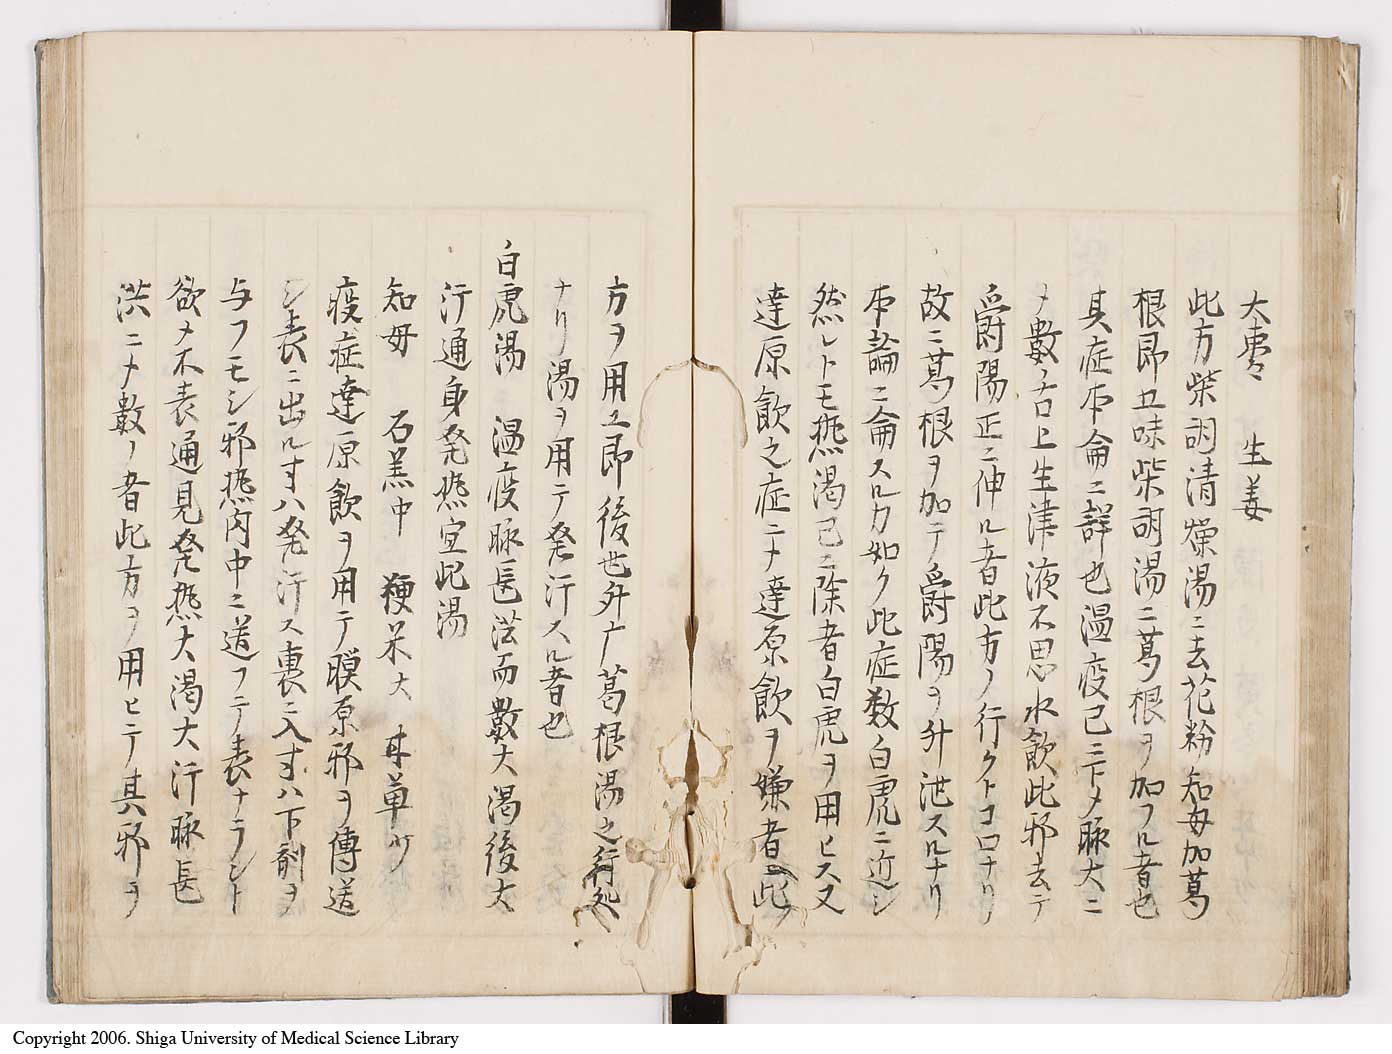 大棗 生姜
此方柴胡清燥湯ニ去花粉知母加葛
根即五味柴胡湯ニ葛根ヲ加フル者也
其症本侖ニ詳也温疫已ニ下メ脉大ニ
メ數ノ舌上生津液不思水飲此邪去テ
欝陽正ニ伸ル者此方ノ行クトコロナリ
故ニ葛根ヲ加テ欝陽ヲ升泄スルナリ
本論ニ侖スルカ如ク此症数白虎ニ近シ
然レトモ熱渇已ニ除者白虎ヲ用ヒス又
達原飲之症ニメ達原飲ヲ嫌者此
方ヲ用ユ即後世升广葛根湯之行処
ナリ湯ヲ用テ発汗スル者也
白虎湯 温疫脉長洪而數大渇後大
汗通身発熱宜此湯
知母 石羔中 粳米大 甘草少
疫症達原飲ヲ用テ膜原邪ヲ傳送
シ表ニ出ル寸ハ発汗ス裏ニ入寸ハ下剤ヲ
与フモシ邪熱内中ニ送フテ表ナラント
欲メ不表通見発熱大渇大汗脉長
洪ニメ數ノ者此方ヲ用ヒテ其邪ヲ
Copyright 2006. Shiga University of Medical Science Library